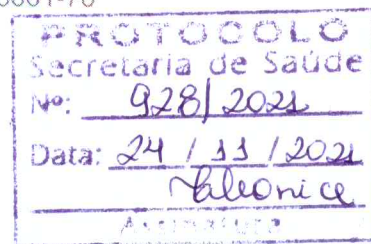 0001-70
PROTOCOLO
Secretaria de Saúde
Nº: 928/2021
Data: 24 / 11 / 2021
Cleonice
Assinatura